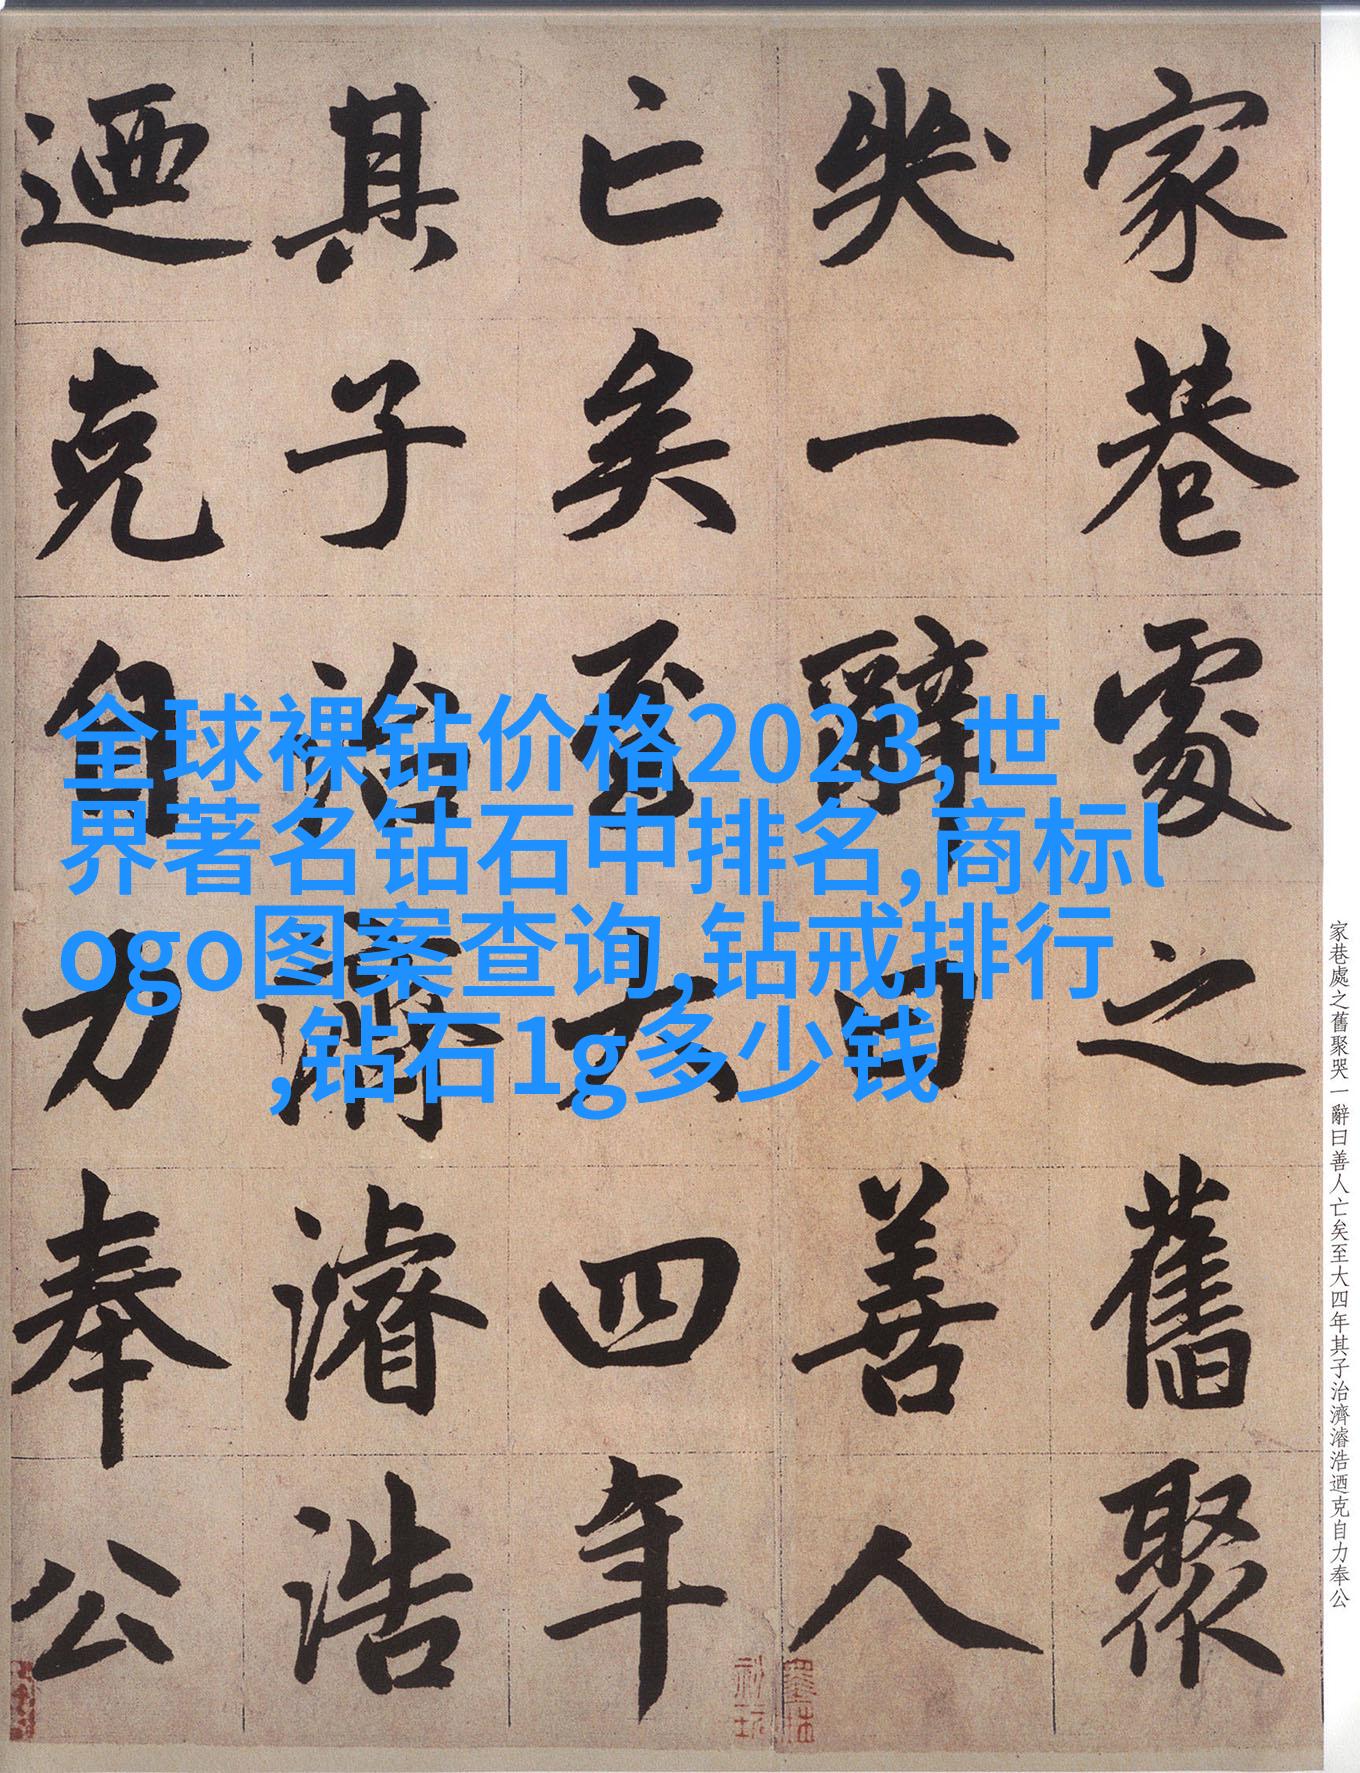 家巷處之舊聚
哭一辭曰善人
亡矣至大四年
其子治濟濬浩
迺克自力奉公
全球裸钻价格2023,世
界著名钻石中排名,商标l
ogo图案查询,钻戒排行
,钻石1g多少钱
家巷處之舊聚哭一辭曰善人亡矣至大四年其子治濟濬浩迺克自力奉公